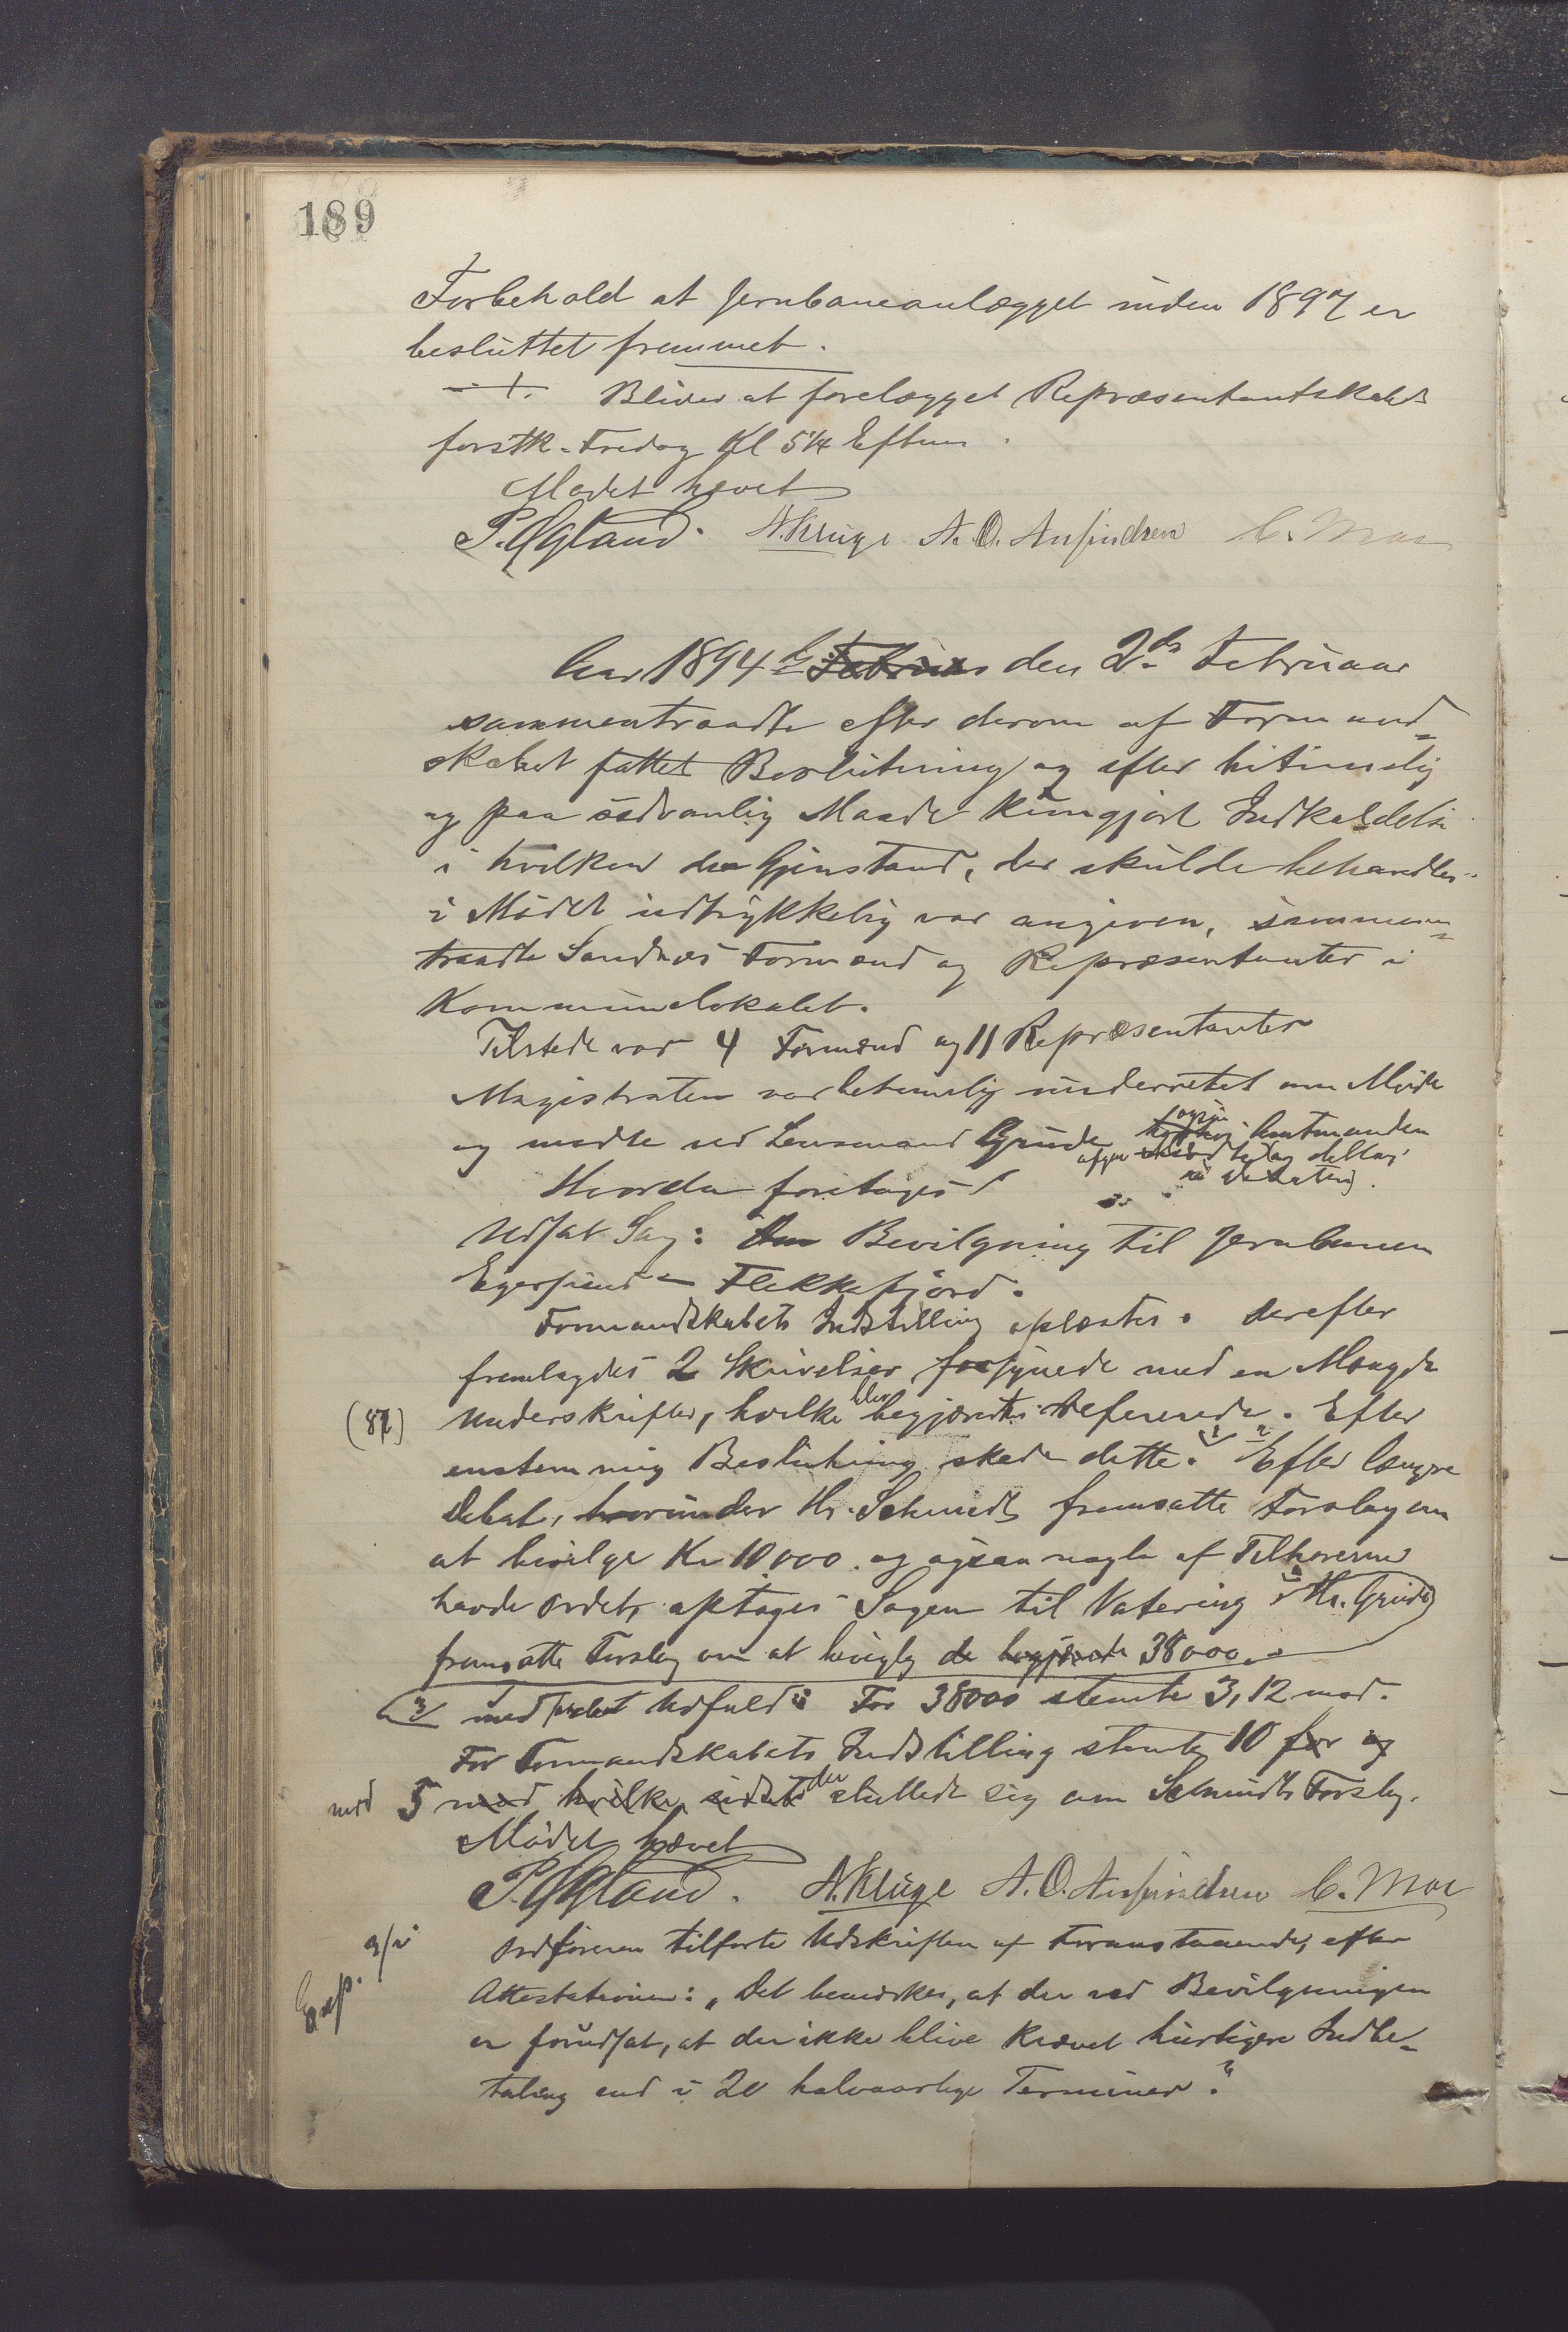 189
Forbehold at Jernbaneanlægget inden 1897 er
besluttet fremmet.
Bliver at forelægget Repræsentantskabet
forstk. Fredag Kl 5 1/4 Efterm.
Mødet hævet
P. Ogland. N. Kluge A. O. Ansfindsen C. Moe
Aar 1894 den 2den Februar
sammentraadte efter derom af Formand=
skabet fattet Beslutning og efter betimelig
og paa sædvanlig Maade kundgjort Indkaldelse
i hvilken de Gjenstand, der skulde behandles
i Mødet udtrykkelig var angiven, sammen=
traadte Sandnes Formænd og Repræsentanter i
Kommunelokalet.
Tilstede var 4 Formænd og 11 Repræsentanter
Magistraten var betimelig underrettet om Møde
og mødte ved Lensmand Grude ogsaa Amtmanden
og deltog
i Debatten.
Hvorda foretoges
Udsat Sag: Bevilgning til Jernbanen
Egersund - Flekkefjord.
Formandskabets Indstilling oplæstes. derefter
fremlagdes 2 Skrivelser forsynede med en Mængde
(87) Underskrifter, hvilke blev begjærede refererede. Efter
enstemmig Beslutning skede dette. Efter længre
Debat, hvorunder Hr. Schmidt fremsatte Forslag om
at bevilge Kr 10,000. og ogsaa nogle af Tilhørerne
havde Ordet, optoges Sagen til Votering Hr. Grude
fremsatte Forslag om at bevilg de begjærede 38000.
med Udfald: For 38000 stemte 3, 12 mod.
For Formandskabets Indstilling stemte 10 for og
mod 5 mod hvilke sidste der sluttede sig om Schmidts Forslag.
Mødet hævet
P. Ogland. N. Kluge A. O. Ansfindsen C. Moe
Exp. 9/2
Ordføreren tilførte Udskriften af Foranstaaende, efter
Attestationen: „Det bemærkes, at der ved Bevilgningen
er forudsat, at der ikke blive krævet hurtigere Indbe=
taling end i 20 halvaarlige Terminer."